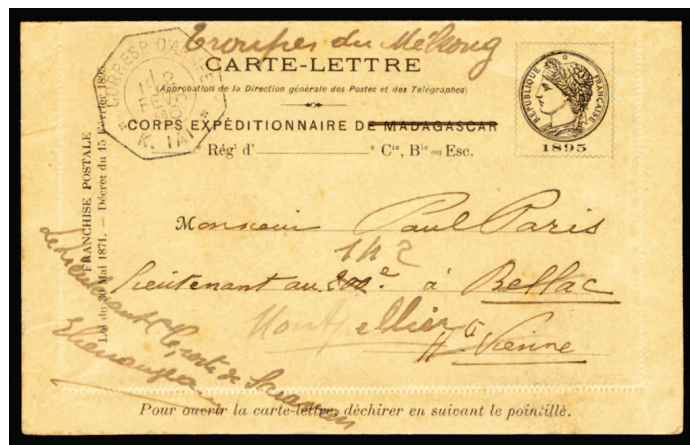 Troupes du Mékong
CARTE-LETTRE
(Approbation de la Direction générale des Postes et des Télégraphes)
CORPS EXPÉDITIONNAIRE DE MADAGASCAR
Régt d' e Cie, Bie ou Esc.
RÉPUBLIQUE FRANÇAISE
1895
CORRESP. D'ARMÉES
FRANCHISE POSTALE
Loi du 30 Mai 1871. — Décret du 15 Février 1895
Monsieur Paul Paris
142
lieutenant au e à Bellac
Montpellier
Hte Vienne
Le Lieutenant
Pour ouvrir la carte-lettre, déchirer en suivant le pointillé.